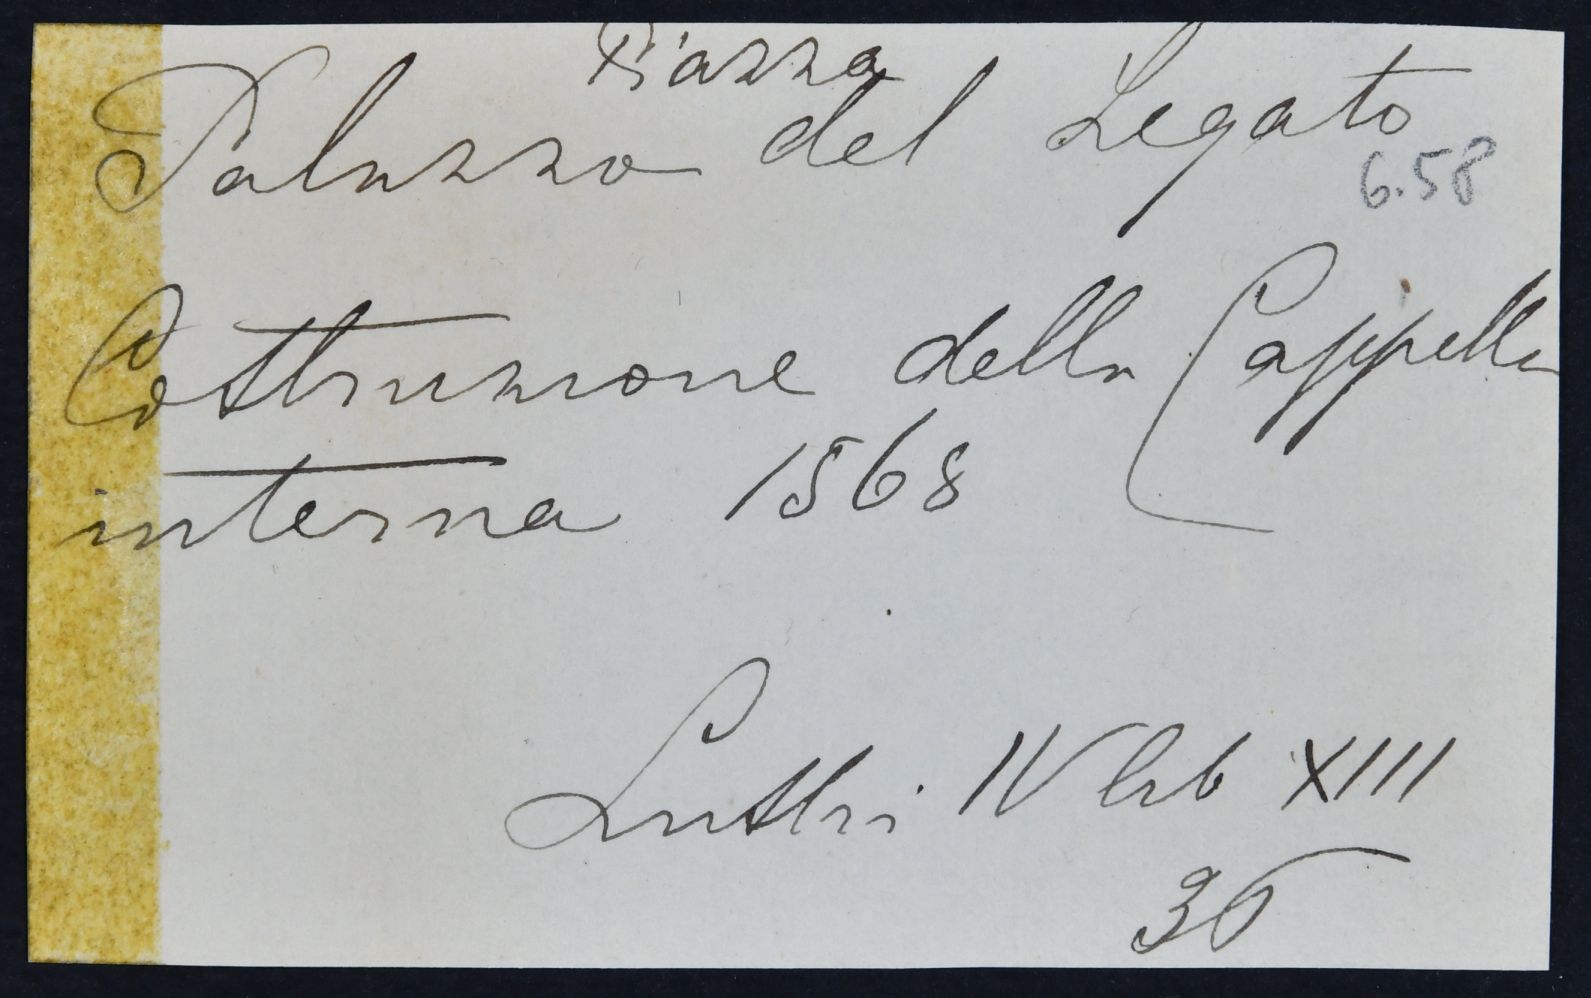 Piazza
Palazzo del Legato
6.58
Costruzione della Cappella
interna 1568
IV lib XIII